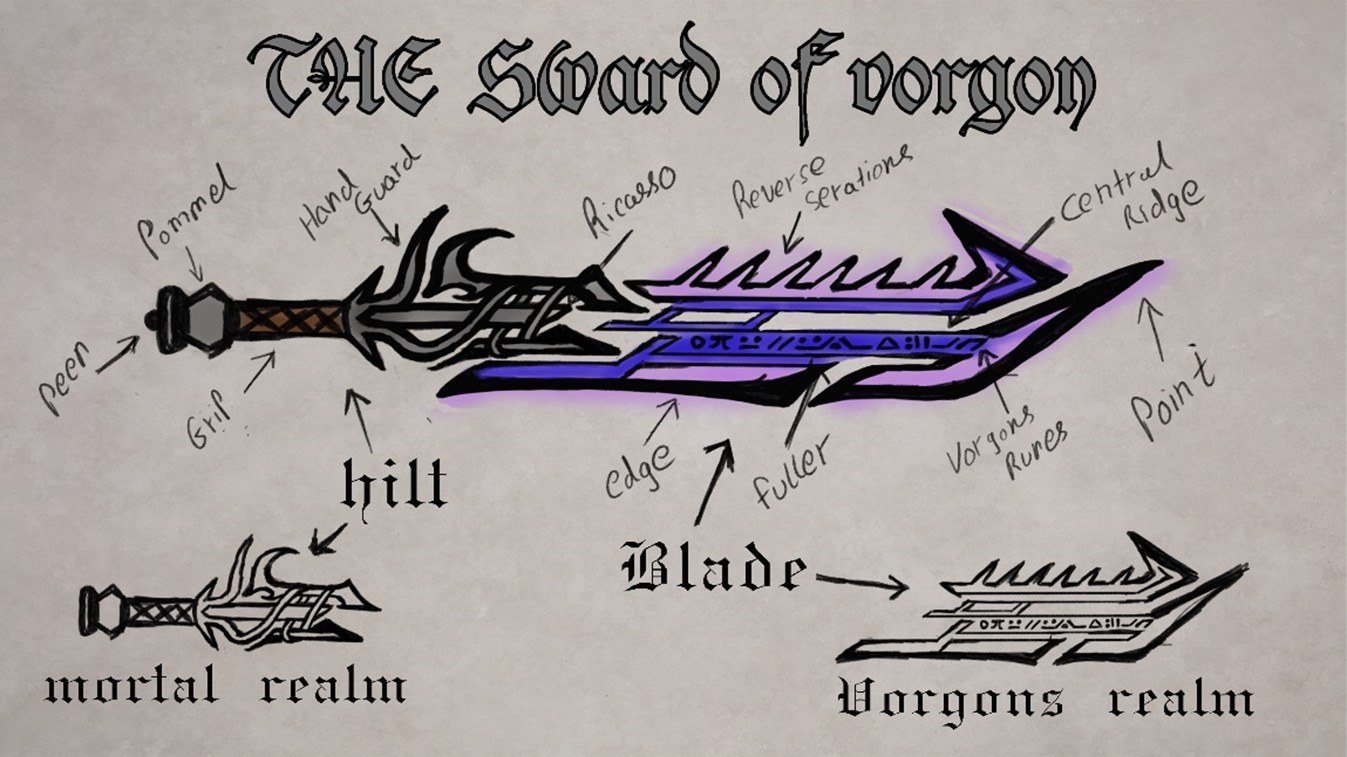 THE Sword of vorgon
Pommel
Hand
Guard
Ricasso
Reverse
Serations
Central
Ridge
Peen
Grip
hilt
edge
Fuller
Vorgons
Runes
Point
Blade
mortal realm
Vorgons realm